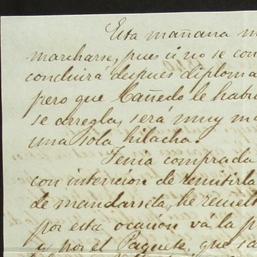 Esta mañana m
marcharse, pues si no se con
concluirá despues diploma
pero que Cañedo le habi
se arregla, será muy ma
una sola hilacha.
Tenia comprada
con intencion de remitirla
de mandarsela, he resuelt
por esta ocasion vá la p
a por el Paquete, que sa